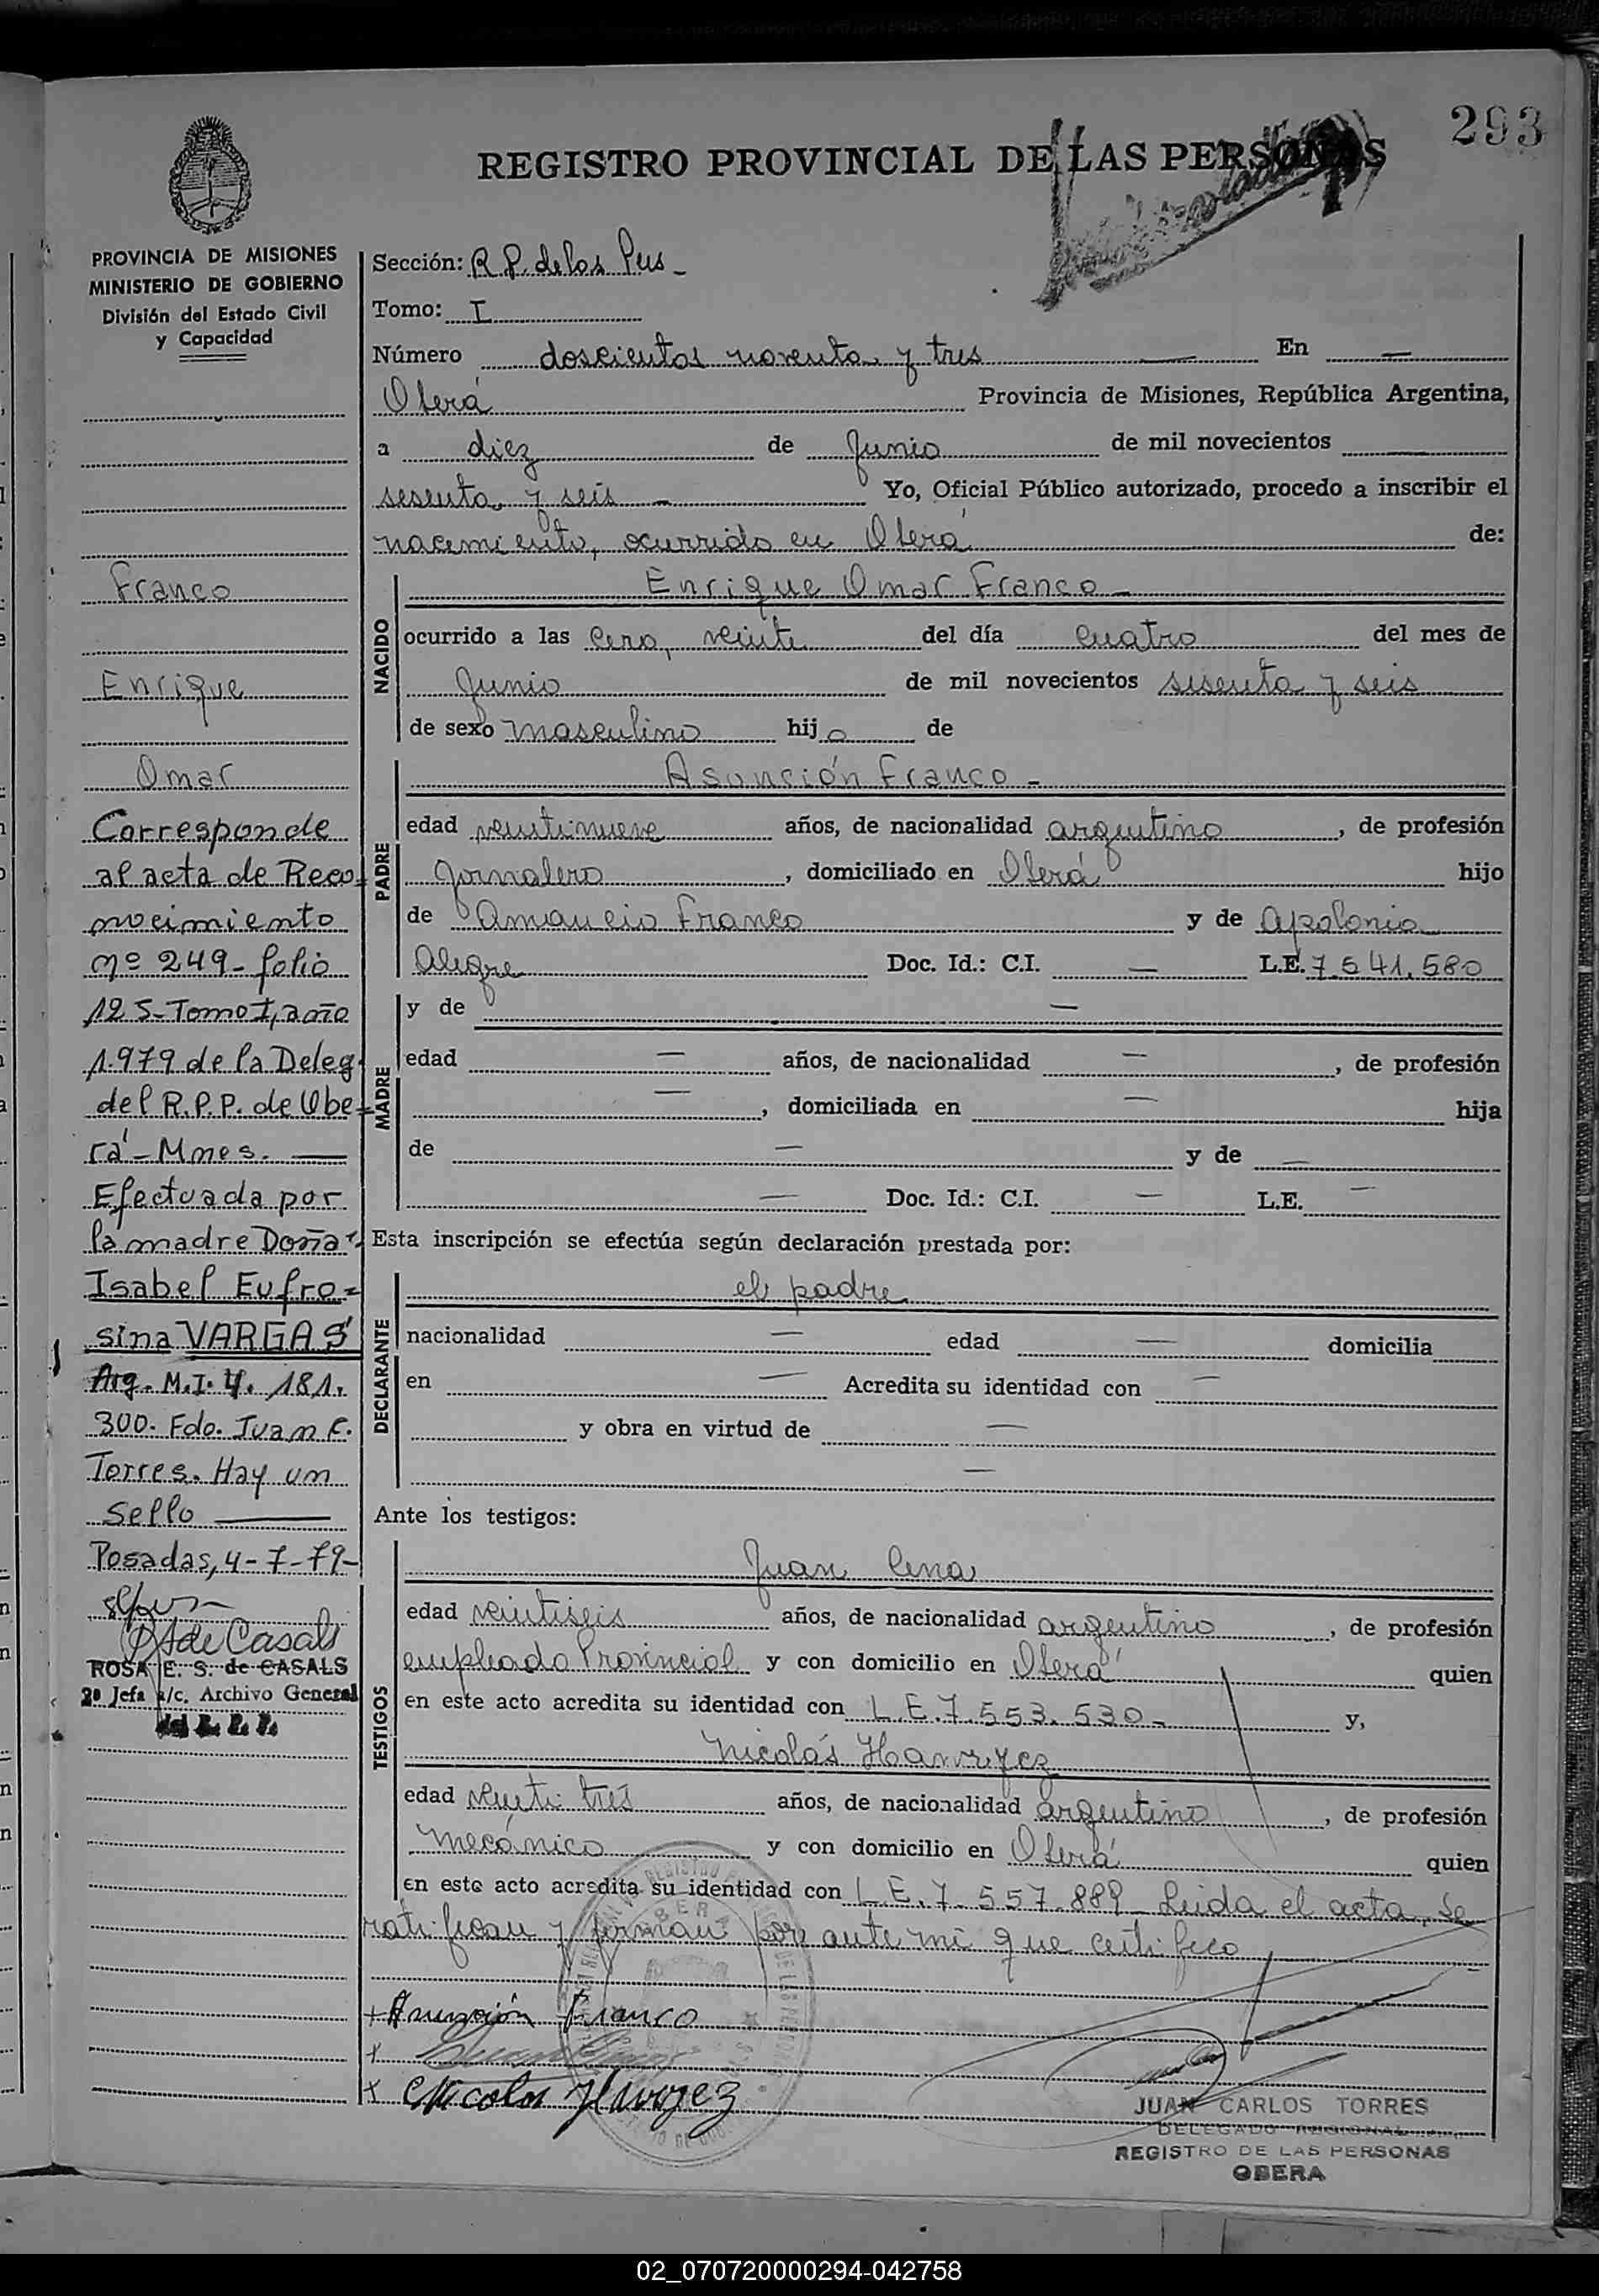 293
REGISTRO PROVINCIAL DE LAS PERSONAS
PROVINCIA DE MISIONES
MINISTERIO DE GOBIERNO
División del Estado Civil
y Capacidad
Franco
Enrique
Omar
Corresponde
al acta de Reco=
nocimiento
nº 249- folio
125-Tomo I, año
1.979 de la Deleg.
del R.P.P. de Obe=
rá - Mnes. —
Efectuada por
la madre Doña
Isabel Eufro=
sina VARGAS
Arg. M.I. 4. 181.
300. Fdo. Juan C.
Torres. Hay un
sello —
Posadas, 4-7-79-
de Casals
ROSA E. S. de CASALS
2ª Jefa a/c. Archivo General
del R. P. P.
Sección: R.P. de las Pers -
Tomo: I
Número doscientos noventa y tres — En —
Oberá Provincia de Misiones, República Argentina,
a diez de Junio de mil novecientos —
sesenta y seis - Yo, Oficial Público autorizado, procedo a inscribir el
nacimiento, ocurrido en Oberá de:
NACIDO
Enrique Omar Franco -
ocurrido a las cero, veinte del día cuatro del mes de
Junio de mil novecientos sesenta y seis
de sexo masculino hijo de
PADRE
Asunción Franco -
edad veintinueve años, de nacionalidad argentino, de profesión
Jornalero, domiciliado en Oberá hijo
de Amancio Franco y de Apolonia
Alegre Doc. Id.: C.I. — L.E. 7.541.580
MADRE
y de —
edad — años, de nacionalidad —, de profesión
—, domiciliada en — hija
de — y de —
— Doc. Id.: C.I. — L.E. —
Esta inscripción se efectúa según declaración prestada por:
DECLARANTE
el padre
nacionalidad — edad — domicilia
en — Acredita su identidad con —
y obra en virtud de —
—
Ante los testigos:
TESTIGOS
Juan Cena
edad veintiseis años, de nacionalidad argentino, de profesión
empleado Provincial y con domicilio en Oberá quien
en este acto acredita su identidad con L.E. 7.553.530- y,
Nicolás
edad veintitres años, de nacionalidad argentino, de profesión
mecánico y con domicilio en Oberá quien
en este acto acredita su identidad con L.E. 7.557.889 Leida el acta, se
ratifican y firman por ante mi que certifico
+ Asunción Franco
x
x Nicolas
JUAN CARLOS TORRES
DELEGADO REGIONAL
REGISTRO DE LAS PERSONAS
OBERA
02_070720000294-042758